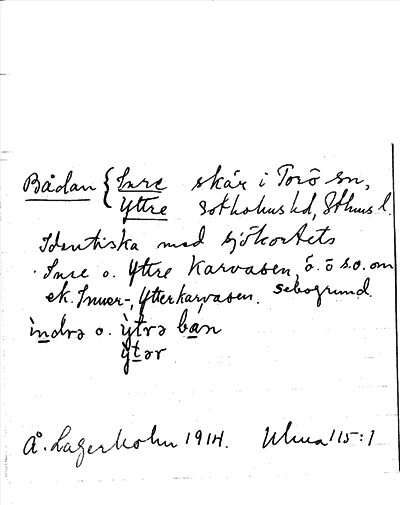 Bådan { Inre skär i Torö sn,
Yttre Sotholms hd, Sthms l.
Identiska med sjökortets
Inre o. Yttre Karvasen, ö. ö s.o. om
ek. Inner-, Ytterkarvasen. sebogrund.
ìndrə o. ỳtrə ban
ỳtər
Å. Lagerholm 1914. Ulma 115:1